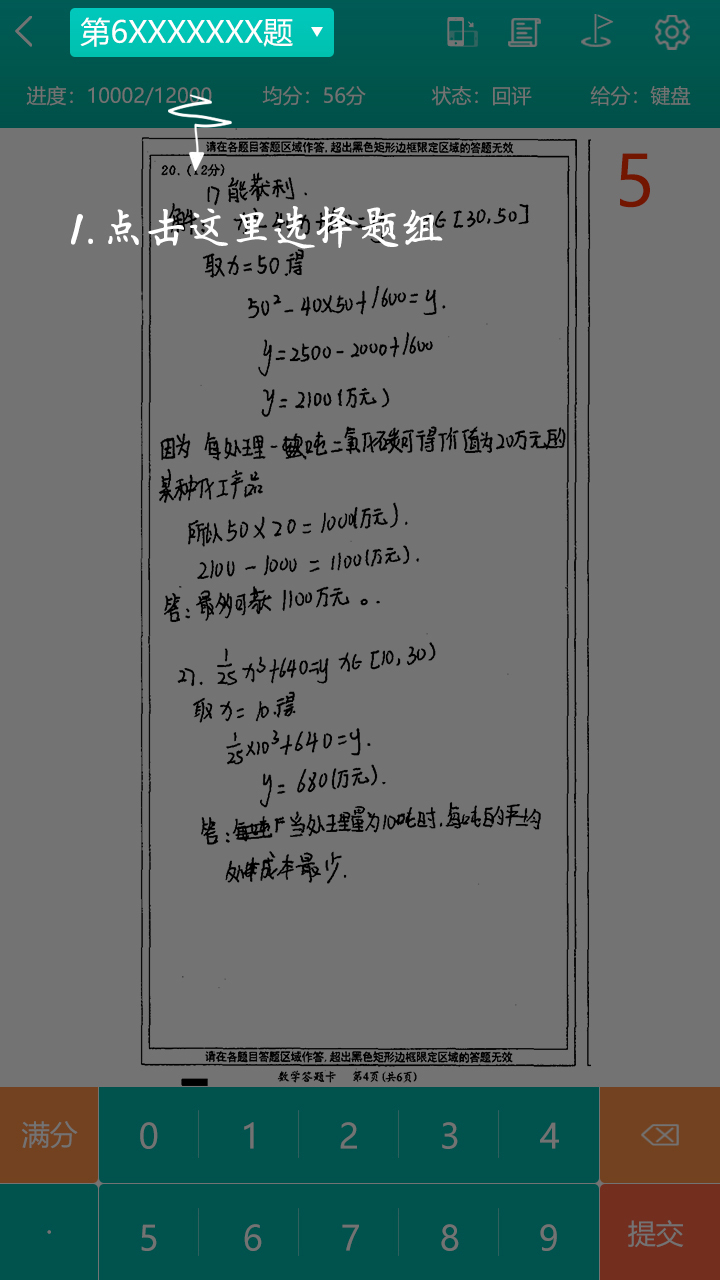 第6XXXXXXX题
进度：10002/12000 均分：56分 状态：回评 给分：键盘
请在各题目答题区域作答，超出黑色矩形边框限定区域的答题无效
5
20.（12分）
1) 能获利.
∈[30,50]
1.点击这里选择题组
取x=50得
50²-40×50+1600=y.
y=2500-2000+1600
y=2100(万元)
因为 每处理一吨二氧化碳可得价值为20万元的
某种化工产品
所以50×20=1000(万元).
2100-1000=1100(万元).
答:最多可获1100万元。.
27. 1/25 x³+640=y x∈[10,30)
取x=10.得
1/25×10³+640=y.
y=680(万元).
答: 当处理量为10吨时.每吨的平均
成本最少.
请在各题目答题区域作答，超出黑色矩形边框限定区域的答题无效
数学答题卡 第4页(共6页)
满分 0 1 2 3 4
. 5 6 7 8 9 提交